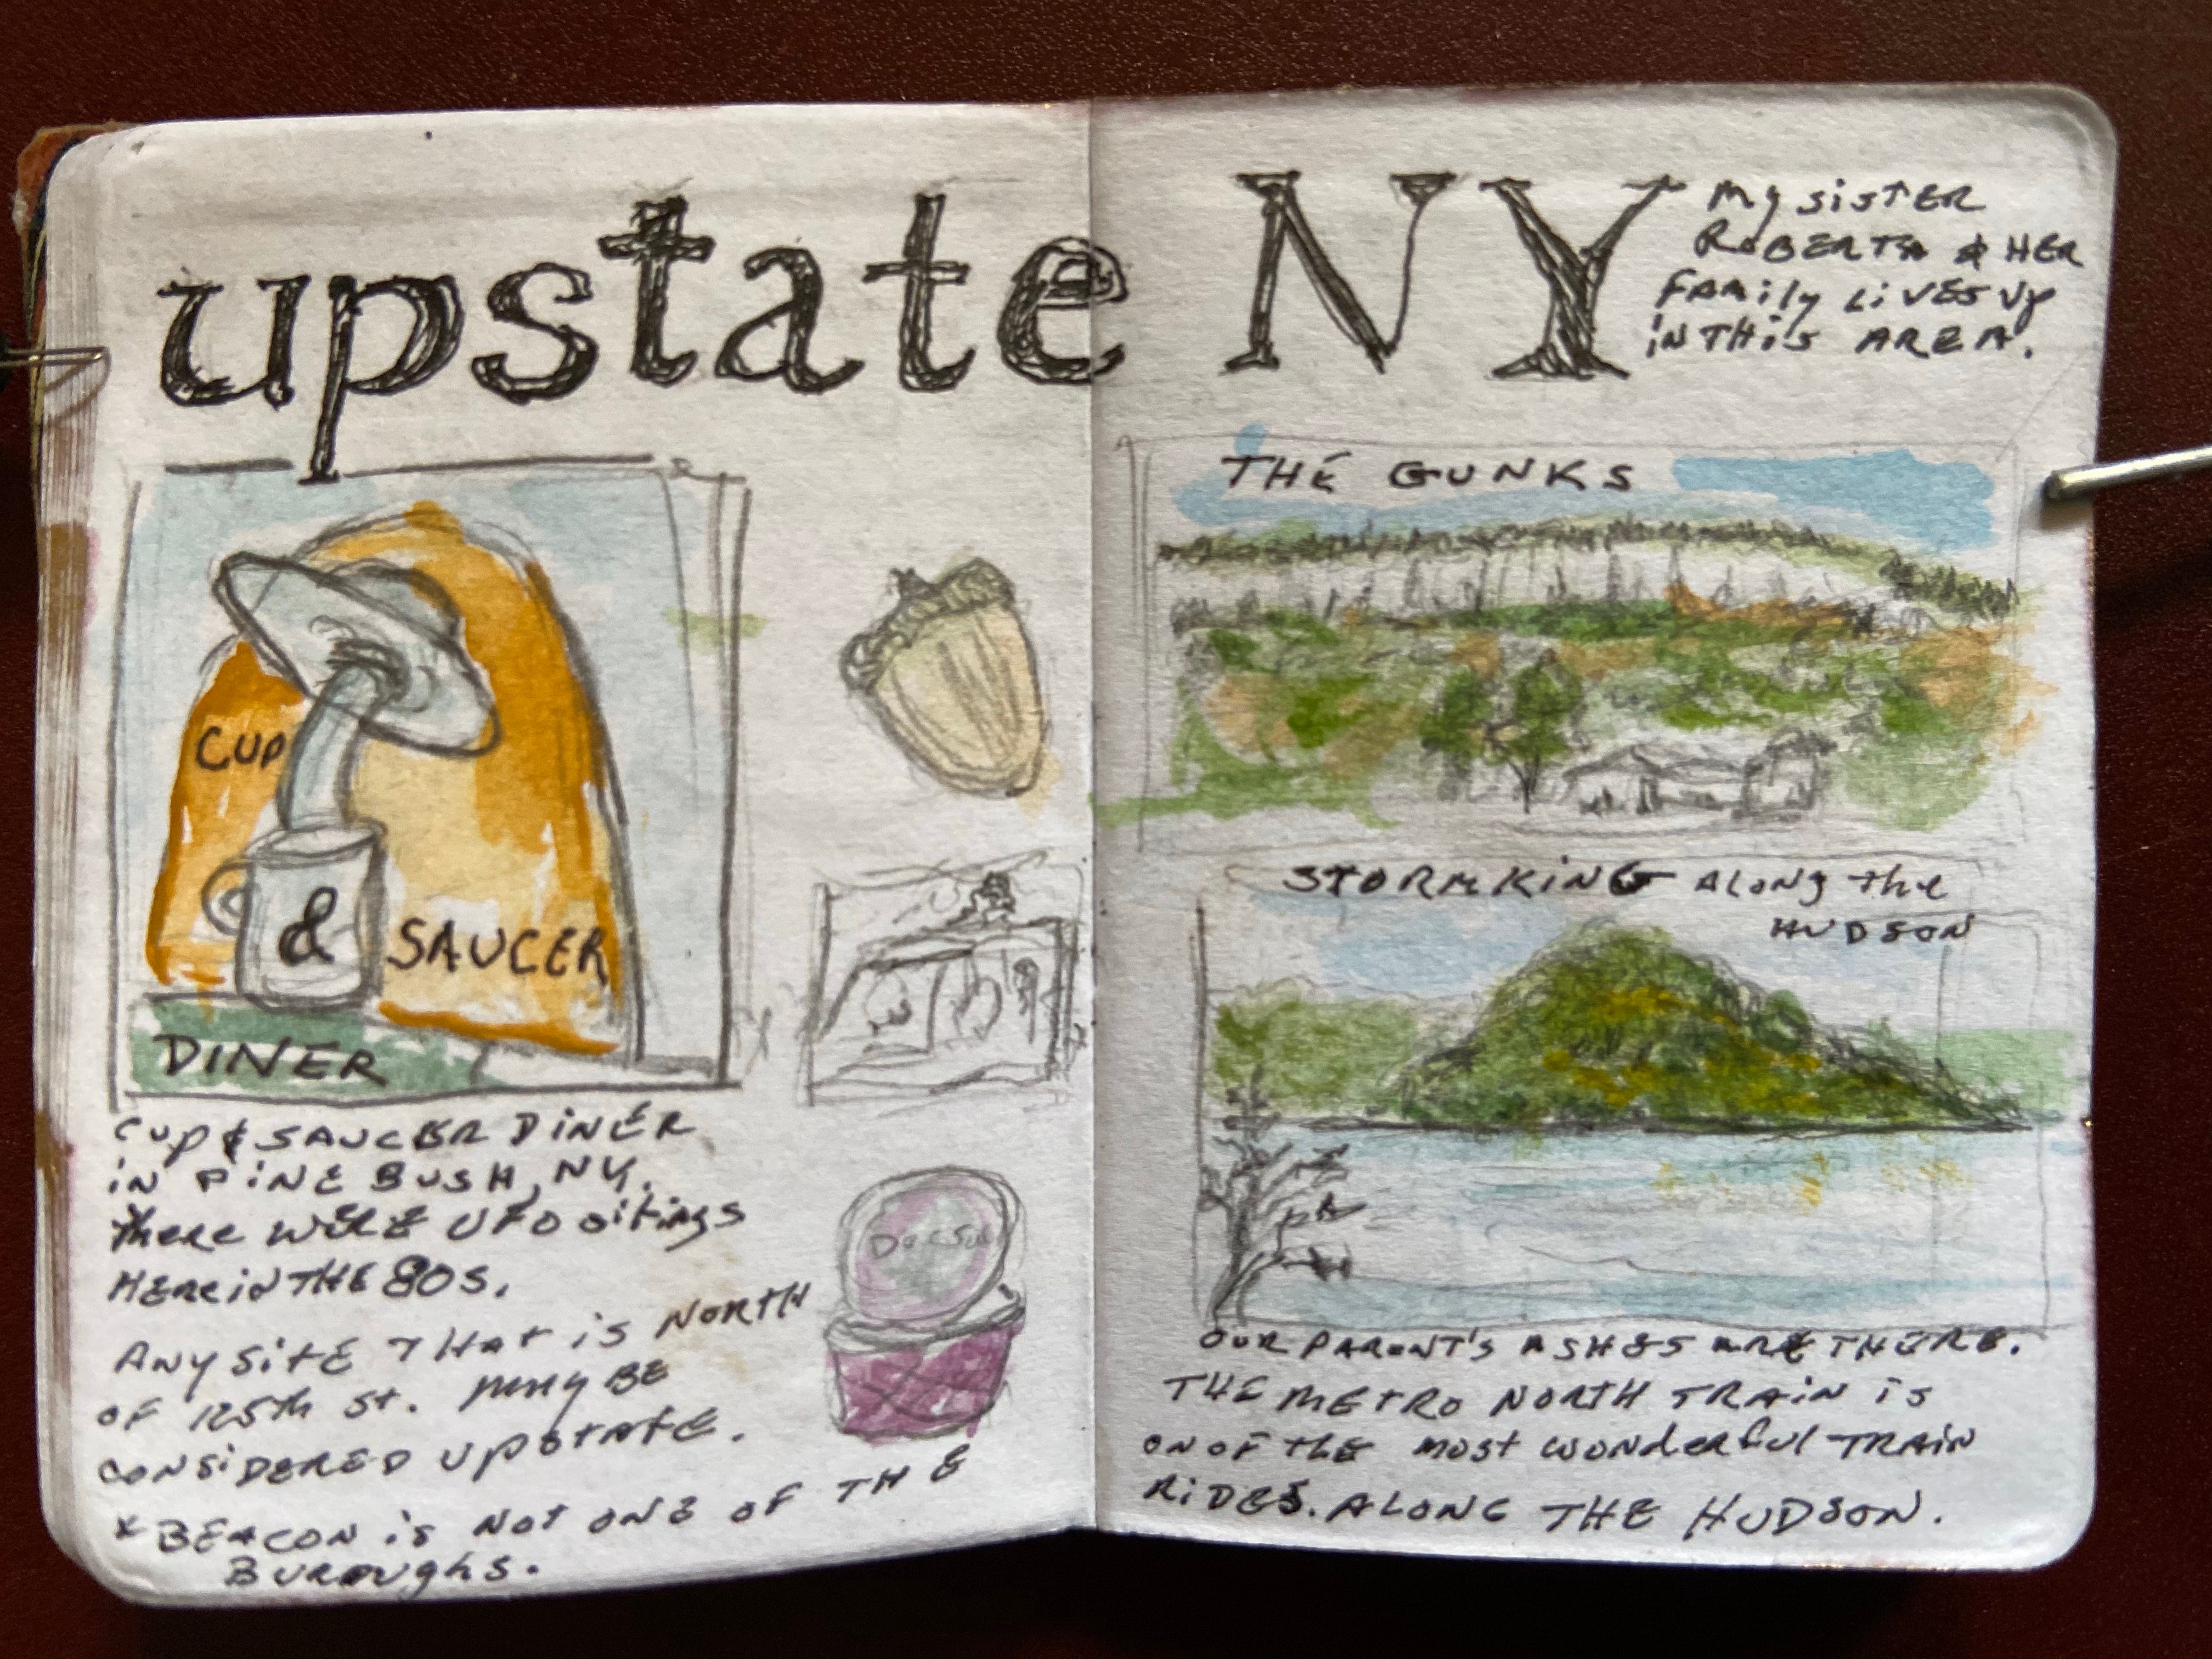 upstate NY
My SiSTER
ROBERTA & HER
FAMily LiVES Up
iN THiS AREA.
CUP
&
SAUCER
DINER
Cup & SAUCER DiNER
in PiNE BUSH, NY.
There WERE UFO sitings
HERE iN THE 80S.
ANY SiTE THAT is NORTH
OF 125th St. MAy BE
CONSiDERED UpSTATE.
* BEACON is NOT ONE OF THE
BUROughS.
THE GUNKS
STORMKiNG ALONg The
HUDSON
OUR PARENT'S ASHES ARE THERE.
THE METRO NORTH TRAiN iS
ON OF THE MOST WONDERFUL TRAiN
RiDES. ALONG THE HUDSON.